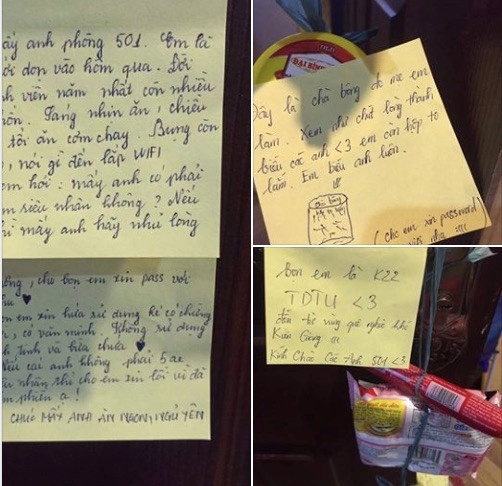 ấy anh phòng 501. Em là
ới dọn vào hôm qua. Đời
h viên năm nhất còn nhiều
Sáng nhịn ăn, chiều
tối ăn cơm chay. Bụng còn
, nói gì đến lắp WIFI
em hỏi: mấy anh có phải
m siêu nhân không? Nếu
mấy anh hãy nhủ lòng
, cho bọn em xin pass với
em xin hứa sử dụng
, có văn minh. Không sử dụng
h tinh và bừa
Nếu các anh không phải 5 ae
nhân thì cho em xin lỗi vì đã
m phiền ạ!
CHÚC MẤY ANH ĂN NGON, NGỦ YÊN
ĐẠI BÌNH
Đây là chà bông do mẹ em
làm. Xem như chút lòng thành
biếu các anh <3 em còn hộp to
lắm. Em biếu anh luôn.
!!!
Chà bông
(cho em xin password
nha !!!
Bọn em là K22
TDTU <3
đến từ vùng quê nghèo khó
Kiên Giang !!!
Kính Chào Các Anh 501 <3